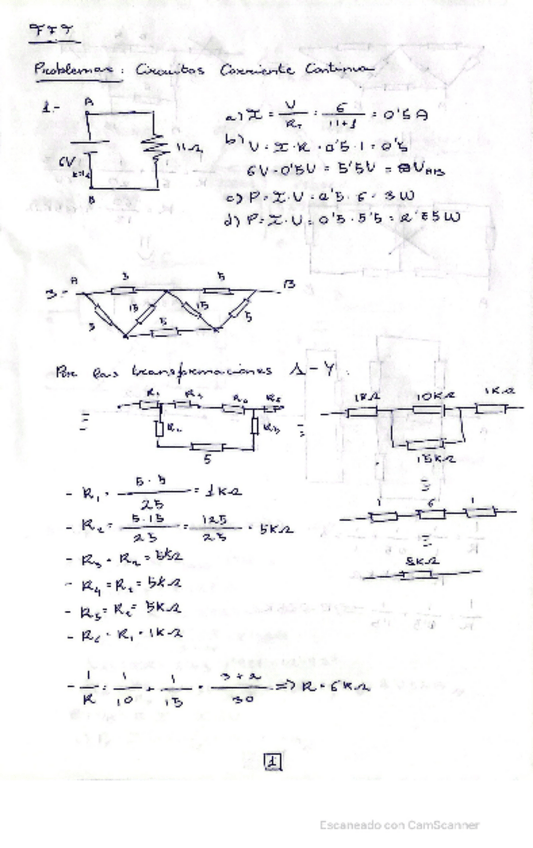 FFT
Problemas: Circuitos Corriente Continua
1.-
A
6V
11Ω
B
a) I = V/R = 6/(11+1) = 0'5 A
b) V = I·R = 0'5·1 = 0'5
6V - 0'5V = 5'5V = V_AB
c) P = I·V = 0'5·6 = 3W
d) P = I·V = 0'5·5'5 =
3.-
A 3 5 B
15 15 5
5
Por las transformaciones Δ-Y
R1 R4
R2 R3
5
≡
≡
1KΩ 10KΩ 1KΩ
15KΩ
≡
1 6 1
≡
8KΩ
- R1 = 5·5/25 = 1KΩ
- R2 = 5·15/25 = 125/25 = 5KΩ
- R3 = R2 = 5KΩ
- R4 = R2 = 5KΩ
- R5 = R2 = 5KΩ
- R6 = R1 = 1KΩ
- 1/R = 1/10 + 1/15 = (3+2)/30 => R = 6KΩ
1
Escaneado con CamScanner